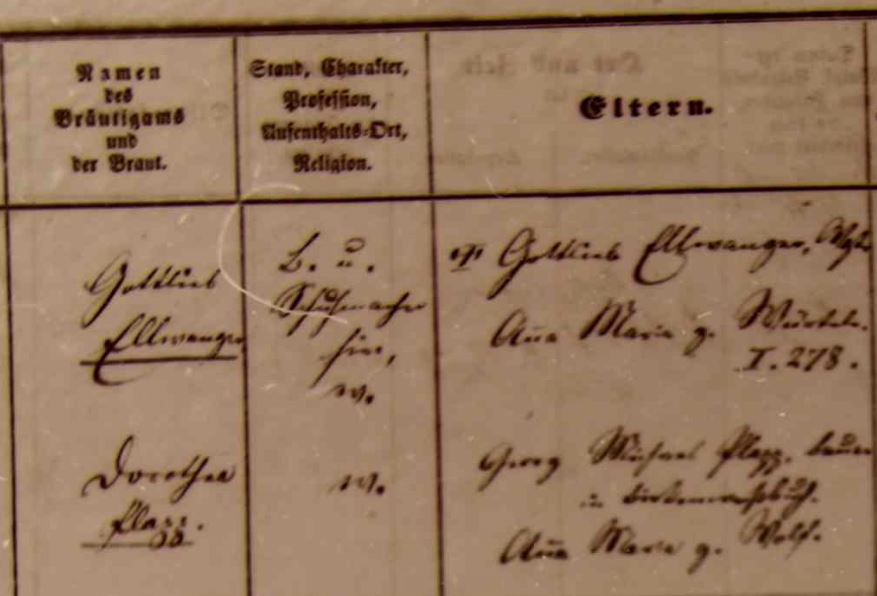 Namen
des
Bräutigams
und
der Braut.
Stand, Charakter,
Profession,
Aufenthalts-Ort,
Religion.
Eltern.
Gottlieb
Ellwanger
B. u.
Schuhmacher
hier,
w.
Gottlieb Ellwanger,
Anna Maria g. Würtele.
I. 278.
Dorothea
Plapp.
w.
Georg Michael Plapp, Bauer
in
Anna Maria g. Wolf.